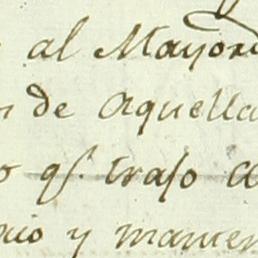 al Mayord
de Aquella
qͤ. traso a
y manten